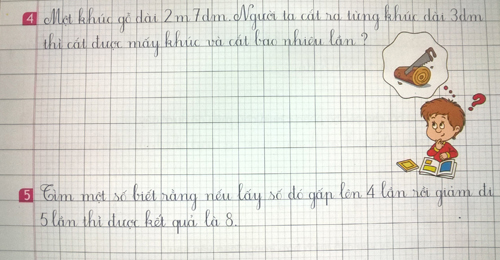 4 Một khúc gỗ dài 2m7dm. Người ta cắt ra từng khúc dài 3dm
thì cắt được mấy khúc và cắt bao nhiêu lần?
5 Tìm một số biết rằng nếu lấy số đó gấp lên 4 lần rồi giảm đi
5 lần thì được kết quả là 8.